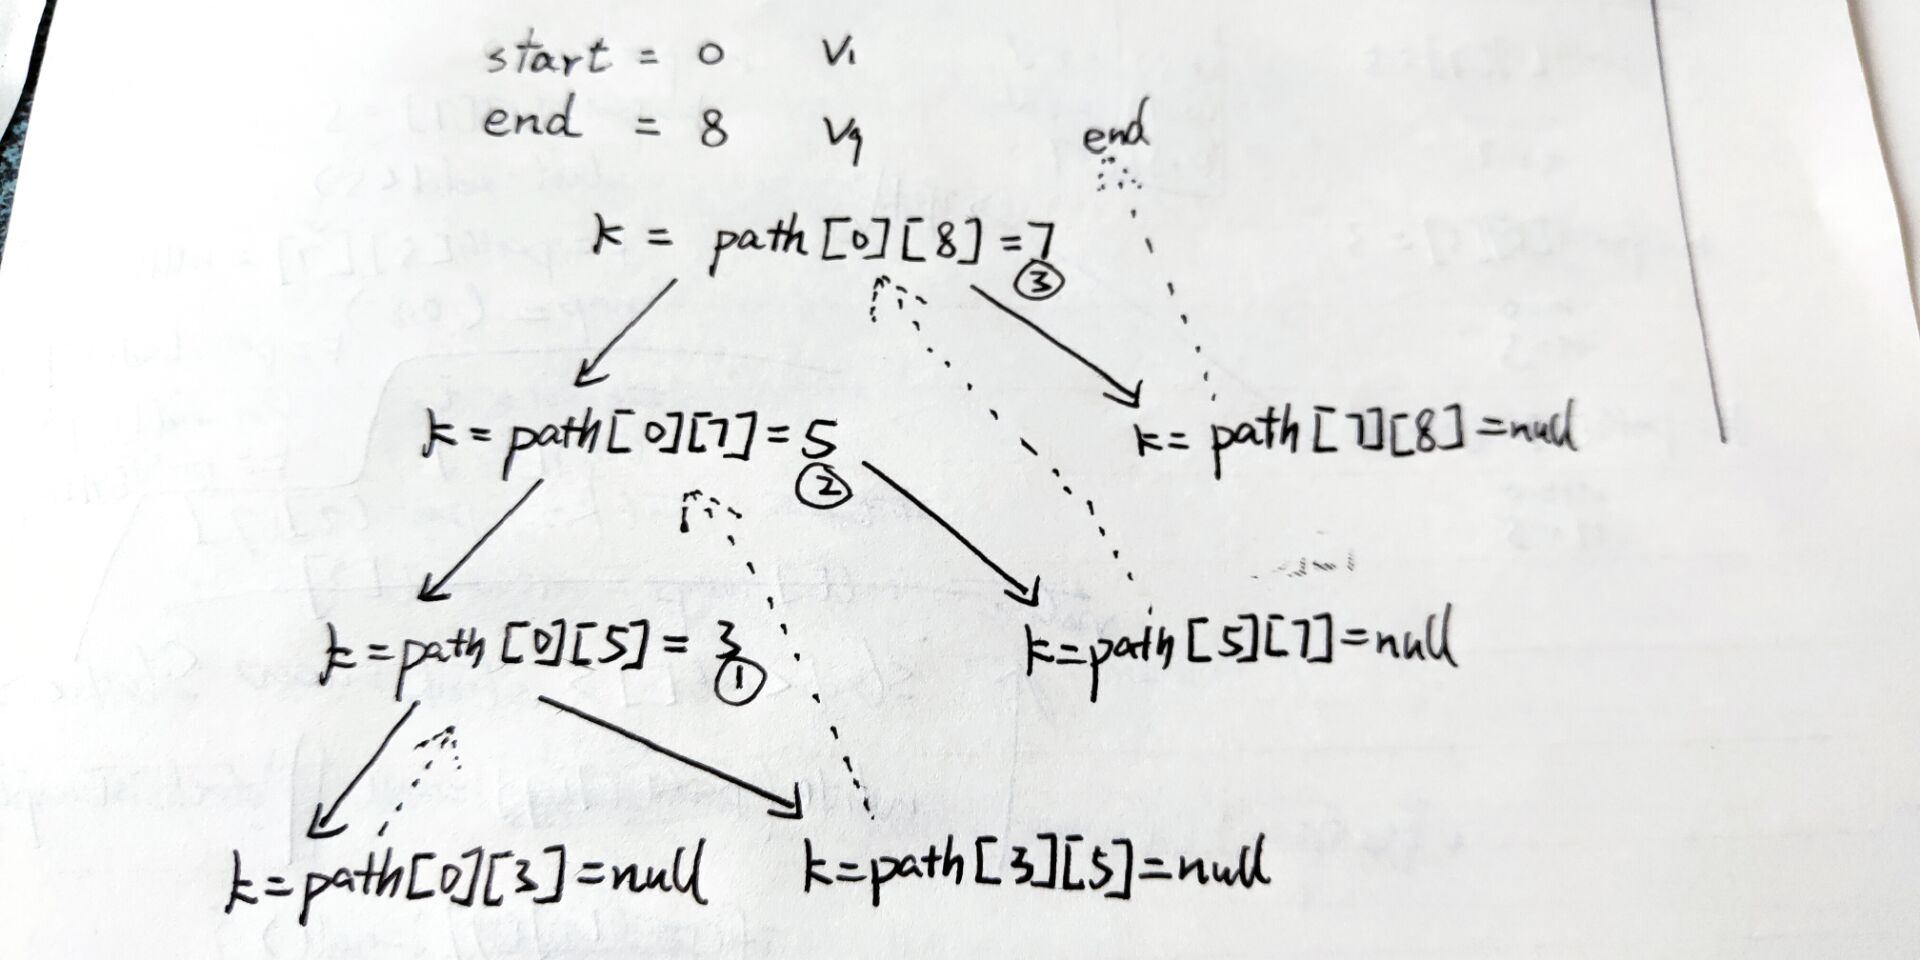 start = 0 V1
end = 8 V9
end
k = path[0][8] = 7
③
k = path[0][7] = 5
②
k = path[7][8] = null
k = path[0][5] = 3
①
k = path[5][7] = null
k = path[0][3] = null
k = path[3][5] = null